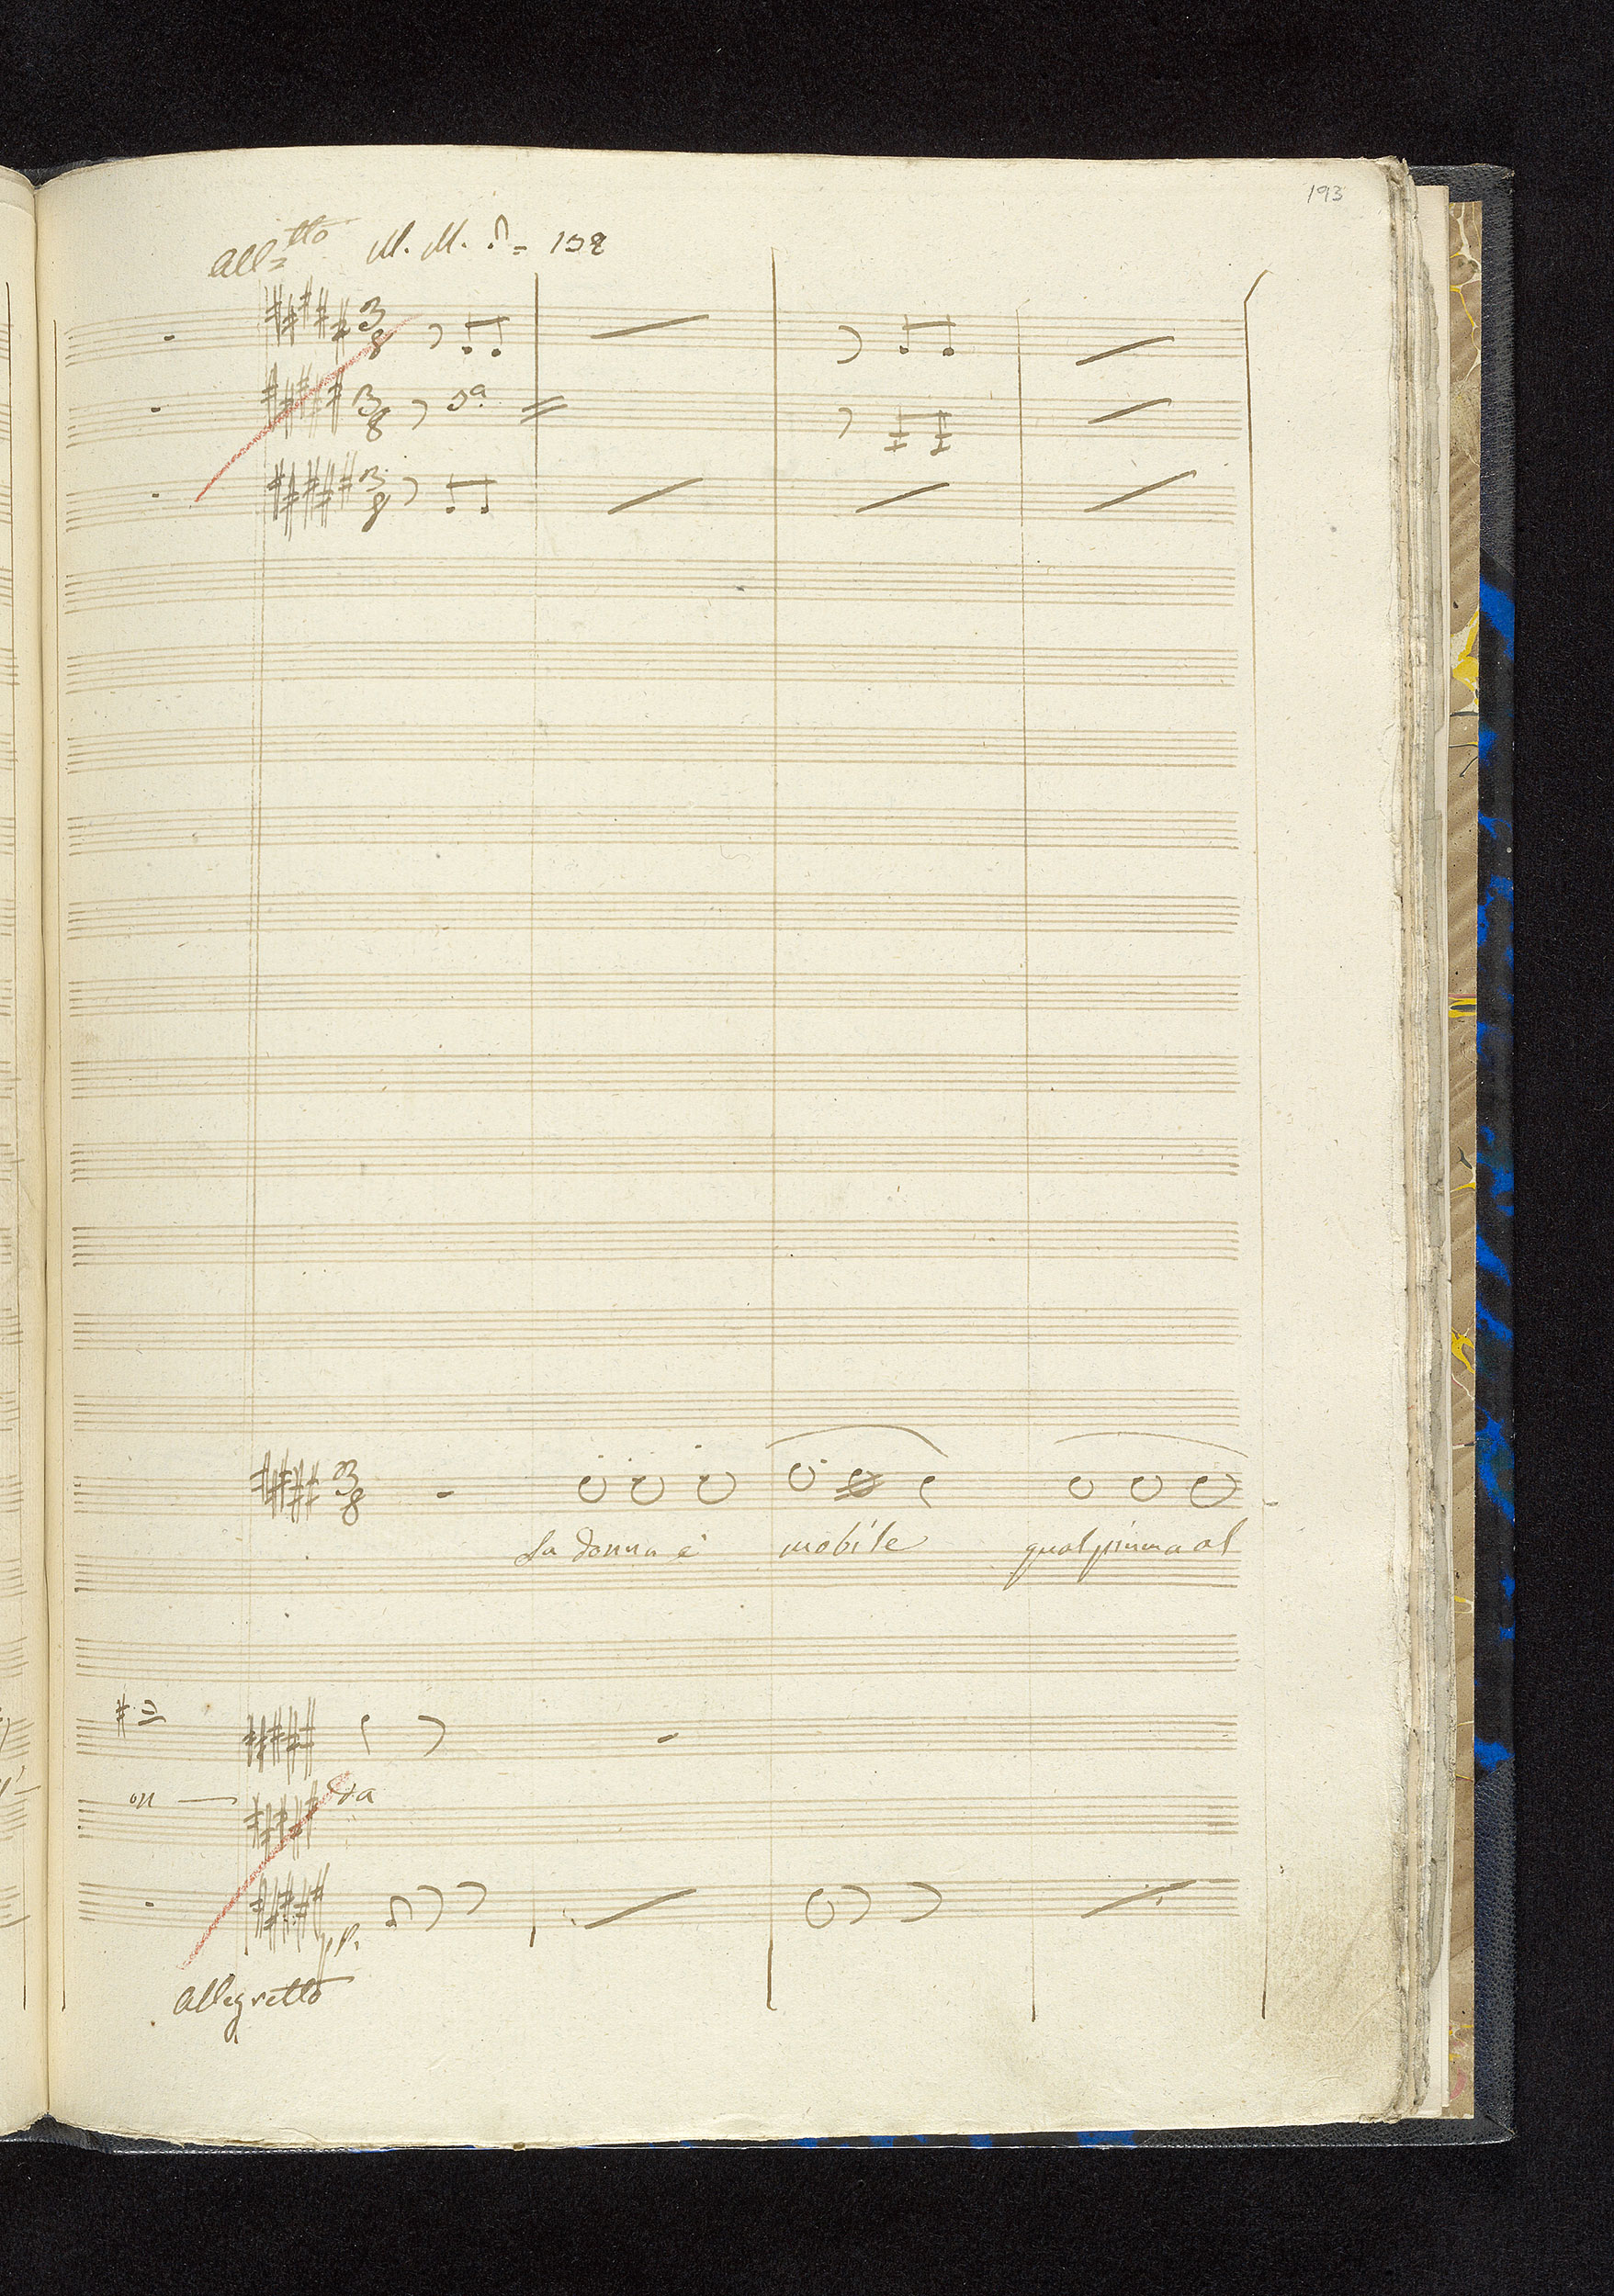 193
All.tto M. M. ♪ = 138
3/8
3/8 3ª
3/8
3/8
La donna è mobile qual piuma al
on — da
pp.
Allegretto